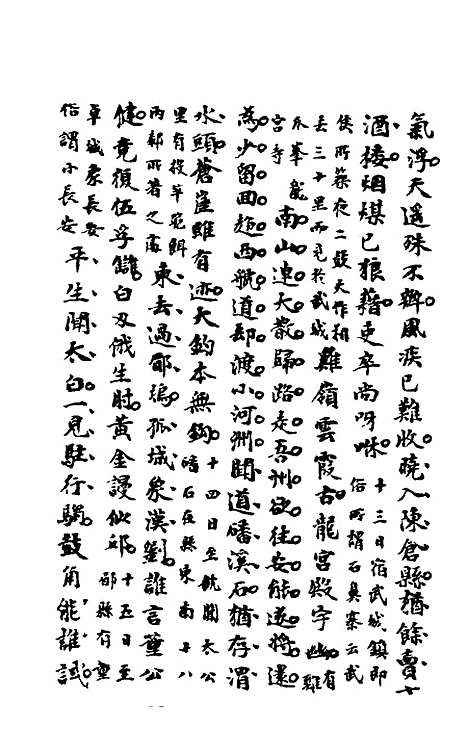 氣浮天遥殊不辨風疾已難收曉入陳倉縣猶餘賣
酒樓烟煤已狼藉吏卒尚呀咻十三日宿武城鎮即
俗所謂石鼻寨云武
侯所築夜二鼓天作相
去三十里而見於武城
雞嶺雲霞古龍宮殿宇幽有
雞
爪峯龍
宮寺
南山連大散歸路走吾州欲往安能遂將還
為少留回趨西虢道却渡小河洲聞道磻溪石猶存渭
水頭蒼崖雖有迹大釣本無鈎十四日至虢聞太公
磻石在縣東南十八
里有投竿跪餌
兩膝所著之處
東去過郿塢孤城象漢劉誰言董公
健竟復伍孚讎白刃俄生肘黃金謾似邱十五日至
郿縣有董
卓城象長安
俗謂小長安
平生聞太白一見駐行騶鼓角能誰試